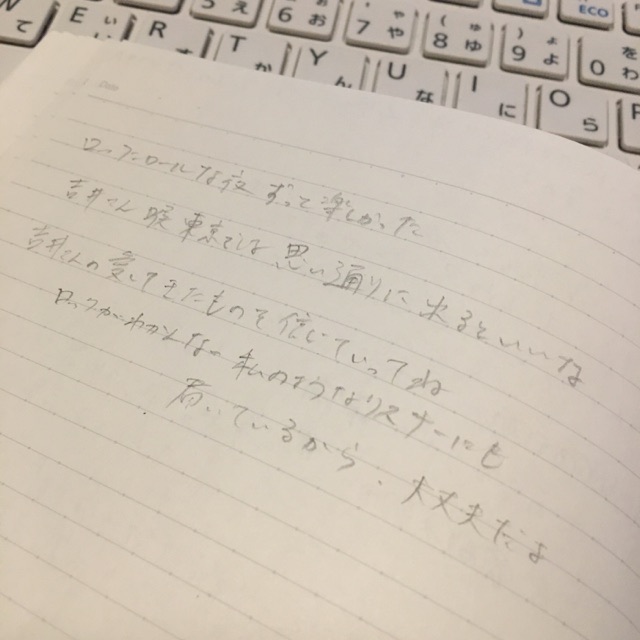 W て E い R す T か Y ん U な I に O ら P
6 お 7 や 8 ゆ 9 よ 0 わ を ECO
Date
ロックンロールな夜 ずっと楽しかった
東京では 思い通りに 出来るといいな
の愛してきたものを信じていってね
ロックがわからない 私のようなリスナーにも
届いているから、大丈夫だよ